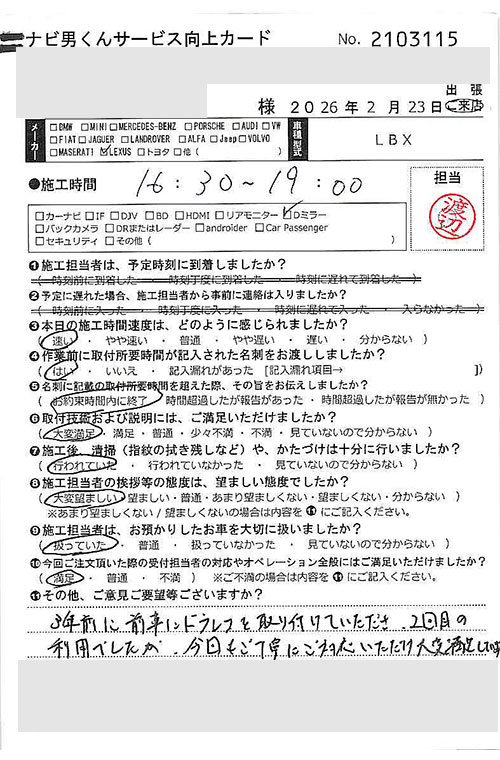 ナビ男くんサービス向上カード No. 2103115
出張
様 2026年2月23日 ご来店
メーカー □BMW □MINI □MERCEDES-BENZ □PORSCHE □AUDI □VW
□FIAT □JAGUER □LANDROVER □ALFA □Jeep □VOLVO
□MASERATI ☑LEXUS □トヨタ □他 ( )
車種型式 LBX
●施工時間 16:30~19:00
担当
渡辺
□カーナビ □IF □DJV □BD □HDMI □リアモニター ☑Dミラー
□バックカメラ □DRまたはレーダー □androider □Car Passenger
□セキュリティ □その他 ( )
❶施工担当者は、予定時刻に到着しましたか?
( 時刻前に到着した ・ 時刻丁度に到着した ・ 時刻に遅れて到着した )
❷予定に遅れた場合、施工担当者から事前に連絡は入りましたか?
( 時刻前に入った ・ 時刻丁度に入った ・ 時刻に遅れて入った ・ 入らなかった )
❸本日の施工時間速度は、どのように感じられましたか?
( 速い ・ やや速い ・ 普通 ・ やや遅い ・ 遅い ・ 分からない )
❹作業前に取付所要時間が記入された名刺をお渡ししましたか?
( はい ・ いいえ ・ 記入漏れがあった [記入漏れ項目→ ])
❺名刺に記載の取付所要時間を超えた際、その旨をお伝えしましたか?
( お約束時間内に終了 ・ 時間超過したが報告があった ・ 時間超過したが報告が無かった )
❻取付技術および説明には、ご満足いただけましたか?
( 大変満足 ・ 満足 ・ 普通 ・ 少々不満 ・ 不満 ・ 見ていないので分からない )
❼施工後、清掃(指紋の拭き残しなど)や、かたづけは十分に行いましたか?
( 行われていた ・ 行われていなかった ・ 見ていないので分からない )
❽施工担当者の挨拶等の態度は、望ましい態度でしたか?
( 大変望ましい ・ 望ましい ・ 普通 ・ あまり望ましくない ・ 望ましくない ・ 分からない )
※あまり望ましくない / 望ましくないの場合は内容を⓫にご記入ください。
❾施工担当者は、お預かりしたお車を大切に扱いましたか?
( 扱っていた ・ 普通 ・ 扱っていなかった ・ 見ていないので分からない )
❿今回ご注文頂いた際の受付担当者の対応やオペレーション全般にはご満足いただけましたか?
( 満足 ・ 普通 ・ 不満 ) ※ご不満の場合は内容を⓫にご記入ください。
⓫その他、ご意見ご要望等ございますか?
3年前に前車にドラレコを取り付けていただき、2回目の
利用でしたが、今回もご丁寧にご対応いただけ大変満足しています